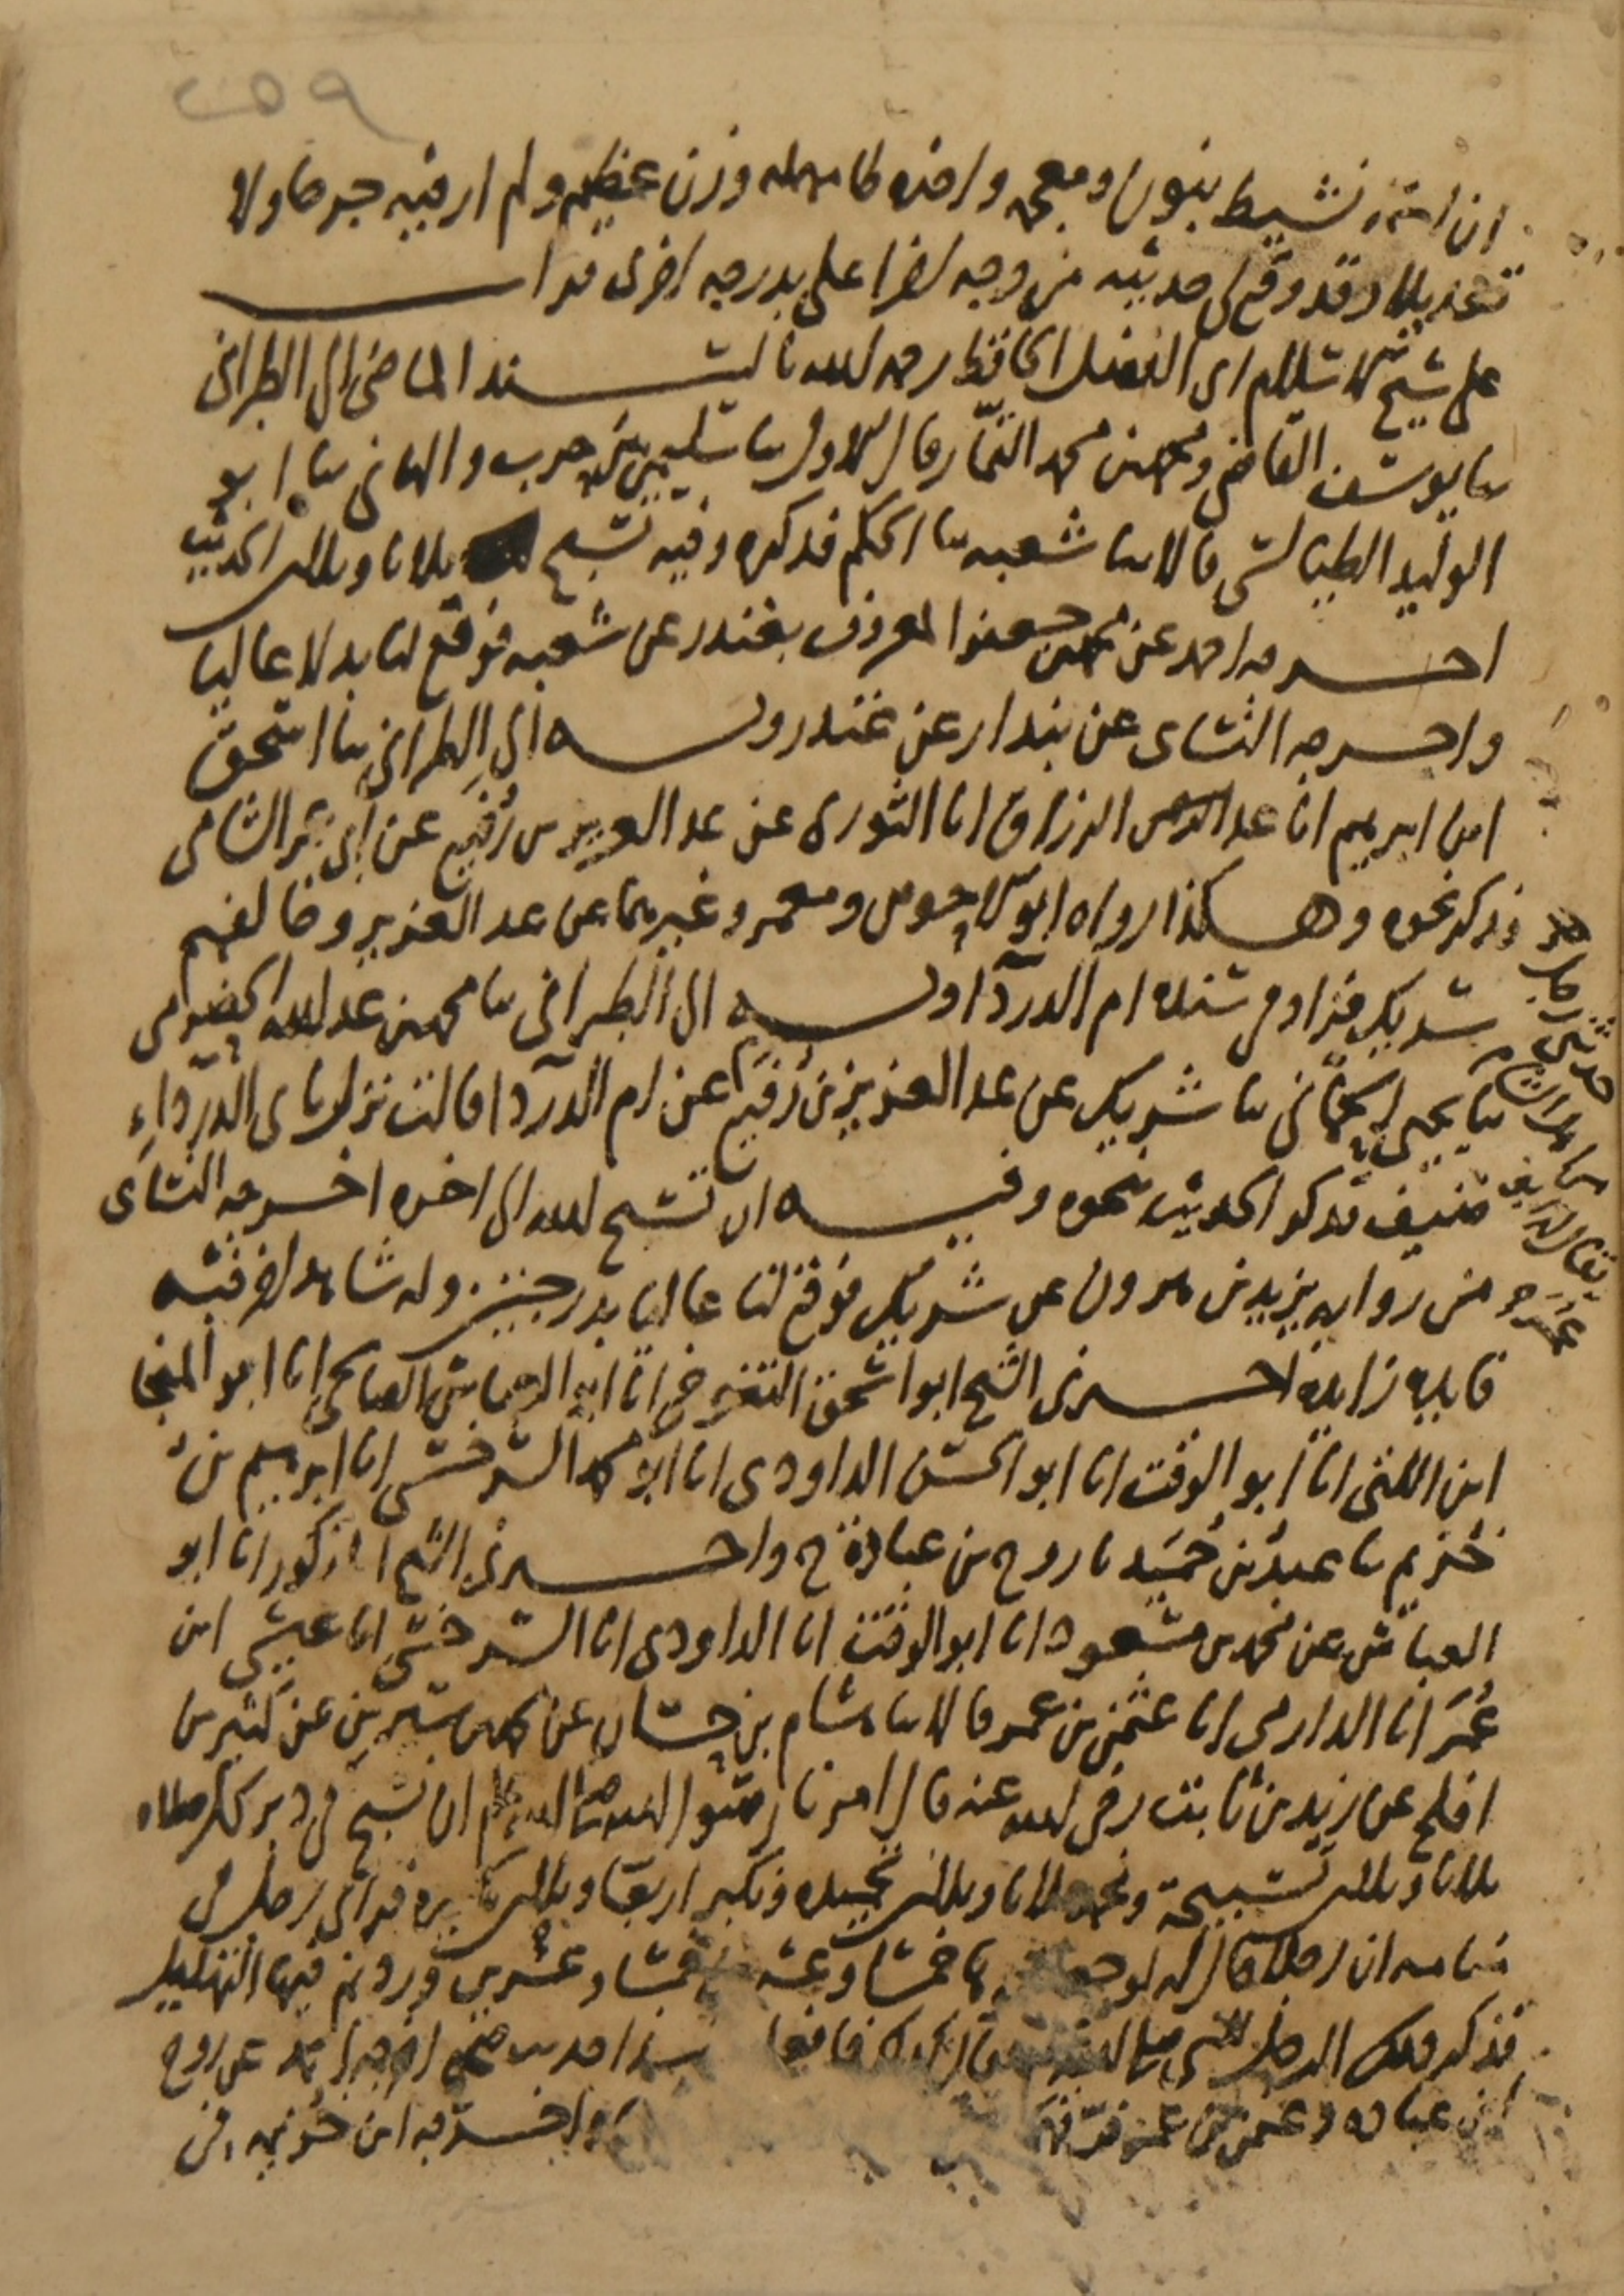 ٢٥٩
ان اسمه نشيط بنون ومعجمه واخره طا مهمله وزن عظيم ولم ار فيه جرحا ولا
تعديلا وقد وقع لى حديثه من وجه اخر اعلى بدرجه اخرى قرات
على شيخ الاسلام ابى الفضل الحافظ رحمه الله بالسند الماضى الى الطبرانى
سا يوسف القاضى ومحمد بن محمد التمار قال الاول سا سليمن بن حرب والثانى سا ابو
الوليد الطيالسى قالا سا شعبه سا الحكم فذكره وفيه تسبح ثلاثا وثلاثين الحديث
اخرجه احمد عن محمد بن جعفر المعروف بغندر عن شعبه فوقع لنا بدلا عاليا
واخرجه النسائى عن بندار عن غندر وبه الى الطبرانى سا اسحق
ابن ابرهيم انا عبد الرزاق انا الثورى عن عبد العزيز بن رُفيع عن ابى عمر الشامى
فذكر نحوه وهكذا رواه ابو الاحوص ومعمر وغيرهما عن عبد العزيز وخالفهم
شريك فزاد فى سنده ام الدردآ وبه الى الطبرانى سا محمد بن عبد الله الحضرمى
سا يحيى الحمانى سا شريك عن عبد العزيز بن رفيع عن ام الدردا قالت نزل بابى الدرداء
ضيف فذكر الحديث نحوه وفيه ان تسبح الله الى اخره اخرجه النسائى
من روايه يزيد بن هرون عن شريك فوقع لنا عاليا بدرجتين وله شاهد اخر فيه
فايده زايدة اخبرنى الشيخ ابو اسحق التنوخى انا ابو العباس الصالحى انا ابو المنجا
ابن اللتى انا ابو الوقت انا ابو الحسن الداودى انا ابو محمد السرخسى انا ابرهيم بن
خُزيم سا عبد بن حُمَيد سا روح بن عبادة ح واخبرنى الشيخ المذكور انا ابو
العباس عن محمد بن مسعود انا ابو الوقت انا الداودى انا السرخسى انا عيسى ابن
عُمَر انا الدارمى انا عثمن بن عمر قالا سا هشام بن حسان عن محمد بن سيرين عن كثير بن
افلح عن زيد بن ثابت رضى الله عنه قال امرنا رسول الله صلى الله عليه وسلم ان نسبح فى دبر كل صلاه
ثلاثا وثلاثين تسبيحة ونحمد ثلاثا وثلاثين تحميده ونكبر اربعا وثلاثين تكبيره فراى رجل فى
منامه ان رجلا قال له لو جعلتموها خمسا وعشرين خمسا وعشرين وزدتم فيها التهليل
فذكر ذلك الرجل للنبى صلى الله عليه وسلم فقال كذلك فافعلوا هذا حديث صحيح اخرجه احمد عن روح
ابن عباده وعثمن بن عمر فرقهما واخرجه ابن خزيمه من